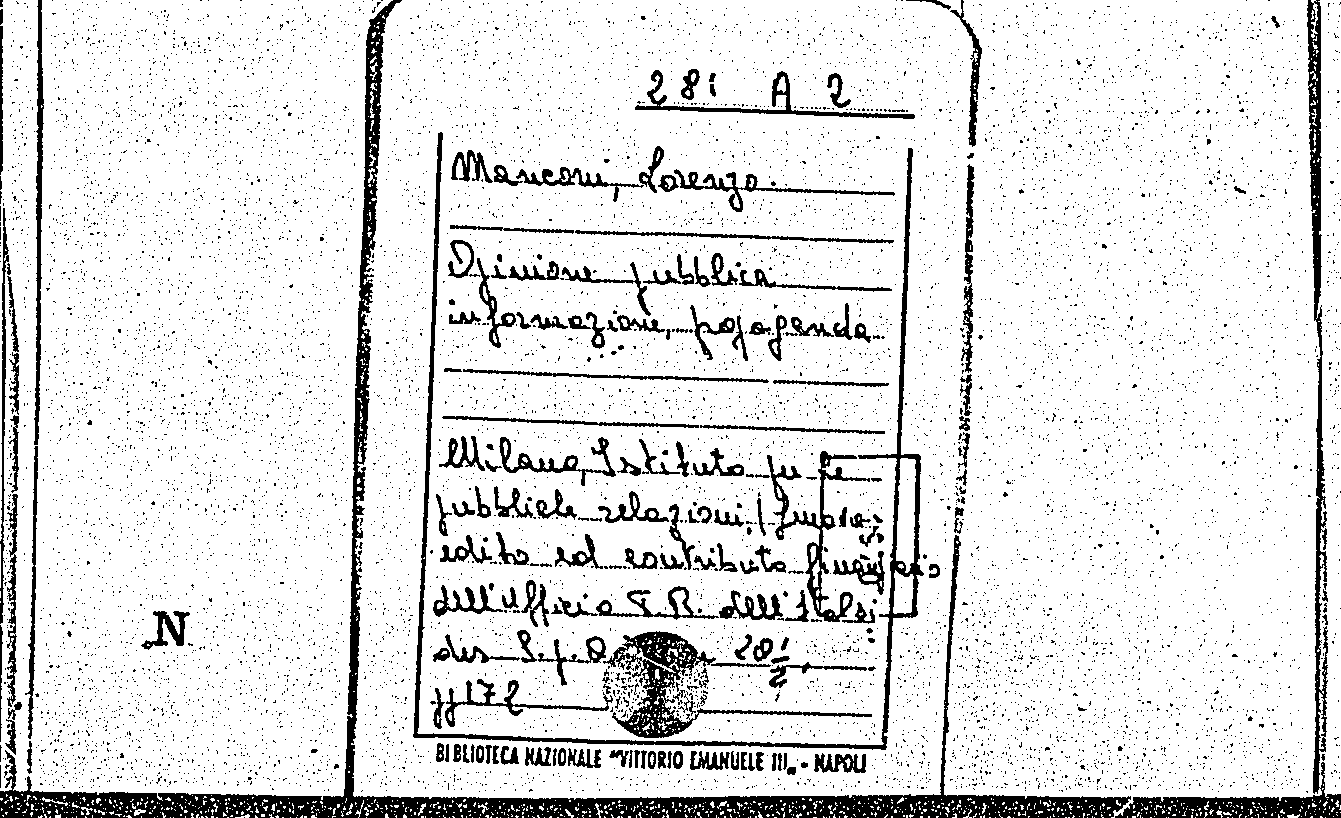 281 A 2
Manconi, Lorenzo.
Opinione pubblica
informazione, popaganda
Milano, Istituto per le
pubbliche relazioni,
edito col contributo finanziario
dell'Ufficio P.R. dell'Italsi
der S.p.A. 20½,
pp 172
N
BIBLIOTECA NAZIONALE "VITTORIO EMANUELE III„ - NAPOLI